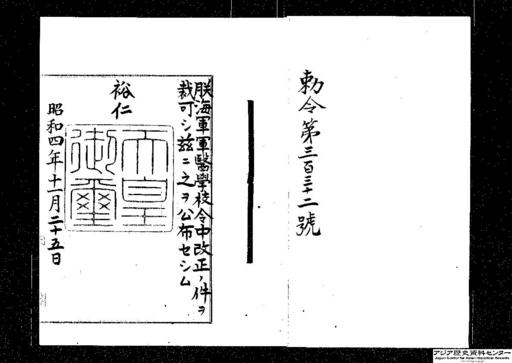 勅令第三百三十二號
朕海軍軍醫學校令中改正ノ件ヲ
裁可シ茲ニ之ヲ公布セシム
裕仁
天皇御璽
昭和四年十一月二十五日
アジア歴史資料センター
Japan Center for Asian Historical Records